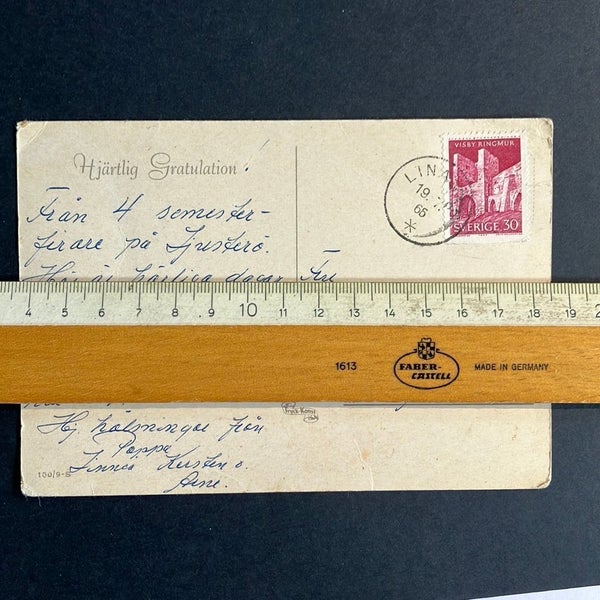 Hjärtlig Gratulation!
Från 4 semester-
firare på Ljusterö.
härliga dagar
Fru
VISBY RINGMUR
SVERIGE 30
LINA
19.
65
4 5 6 7 8 9 10 11 12 13 14 15 16 17 18 19 2
1613
FABER-
CASTELL
MADE IN GERMANY
Hj. hälsningar från
Pappa
Linnéa Kersten o.
Arne.
150/9-S